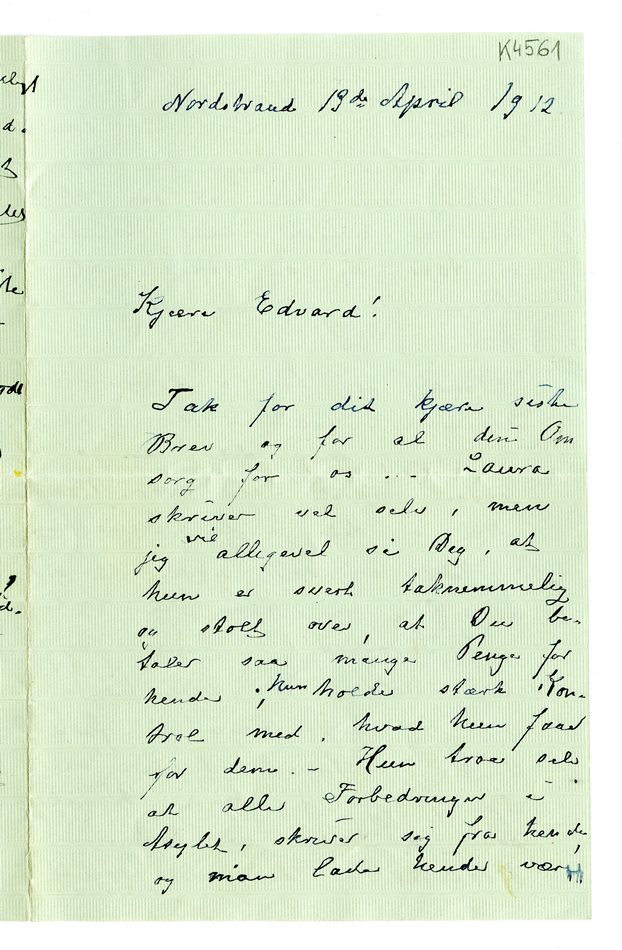 K4561
Nordstrand 19de April 1912.
Kjære Edvard!
Tak for dit kjære siste
Brev og for al din Om
sorg for os ... Laura
skriver vel selv, men
jeg vil alligevel si Deg, at
hun er svært taknemmelig
og stolt over, at Du be-
taler saa mange Penge for
hende, hun holder stærk Kon-
trol med, hvad hun faar
for dem. – Hun tror selv
at alle Forbedringer i
Asylet, skriver sig fra hende,
og man lader hende være